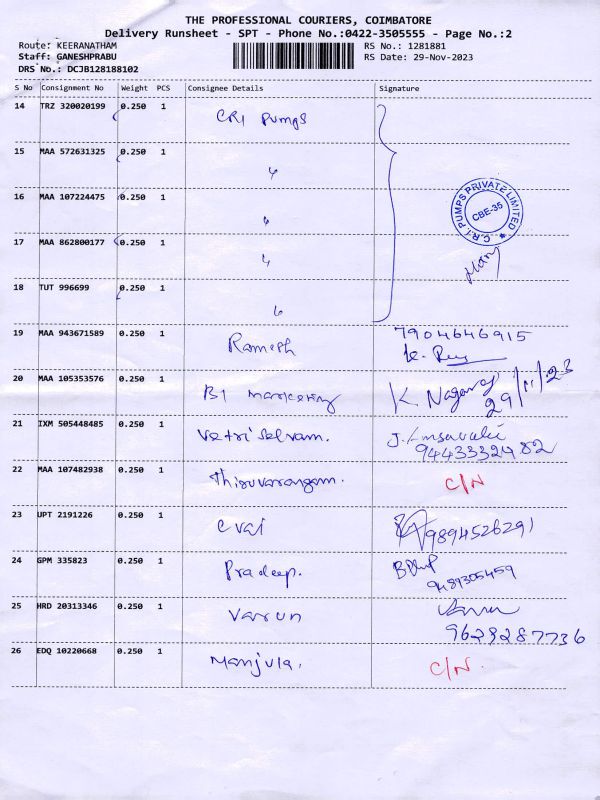 THE PROFESSIONAL COURIERS, COIMBATORE
Delivery Runsheet - SPT - Phone No.:0422-3505555 - Page No.:2
Route: KEERANATHAM RS No.: 1281881
Staff: GANESHPRABU RS Date: 29-Nov-2023
DRS No.: DCJB128188102
S No Consignment No Weight PCS Consignee Details Signature
14 TRZ 320020199 0.250 1 CRI Pumps
15 MAA 572631325 0.250 1 "
16 MAA 107224475 0.250 1 "
C.R.I PUMPS PRIVATE LIMITED
CBE-35
17 MAA 862800177 0.250 1 "
18 TUT 996699 0.250 1 "
19 MAA 943671589 0.250 1 Ramesh 7904646915
20 MAA 105353576 0.250 1 B1 marketing K. Nagaraj 29/11/23
21 IXM 505448485 0.250 1 Vetriselvam. 9443332982
22 MAA 107482938 0.250 1 Thiruvarangam. C/N
23 UPT 2191226 0.250 1 Evai 9894526291
24 GPM 335823 0.250 1 Pradeep. 9489305459
25 HRD 20313346 0.250 1 Varun
9629287736
26 EDQ 10220668 0.250 1 Manjula. C/N.